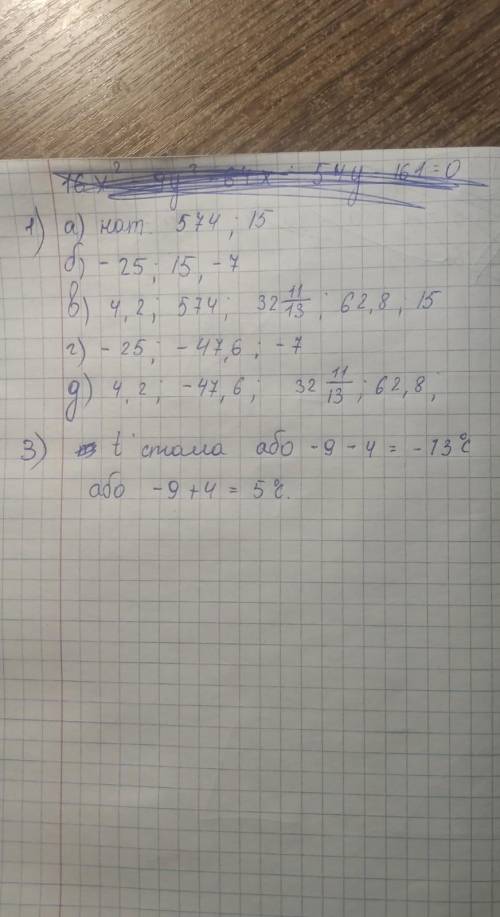 1) а) нат. 574 ; 15
б) - 25 ; 15 , - 7
в) 4,2 ; 574 ; 32 11/13 ; 62,8 ; 15
г) - 25 ; - 47,6 ; - 7
д) 4,2 ; - 47,6 ; 32 11/13 ; 62,8 ;
3) t° стала або - 9 - 4 = - 13°C
або - 9 + 4 = 5°C.